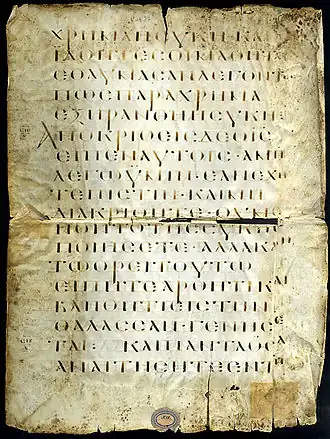 ΧΡΗΜΑΗϹΥΚΗΚΑΙ
ΙΔΟΝΤΕϹΟΙΜΑΘΗΤ
ΕΘΑΥΜΑϹΑΝΛΕΓΟΝΤ
ΠΩϹΠΑΡΑΧΡΗΜΑ
ΕΞΗΡΑΝΘΗΗϹΥΚΗ
ΑΠΟΚΡΙΘΕΙϹΔΕΟΙϹ
ΕΙΠΕΝΑΥΤΟΙϹ·ΑΜΗ
ΛΕΓΩΥΜΙΝ·ΕΑΝΕΧΗ
ΤΕΠΙϹΤΙΝ·ΚΑΙΜΗ
ΔΙΑΚΡΙΘΗΤΕ·ΟΥΜΟ
ΝΟΝΤΟΤΗϹϹΥΚΗϹ
ΠΟΙΗϹΕΤΕ·ΑΛΛΑΚΑΙ
ΤΩΟΡΕΙΤΟΥΤΩ
ΕΙΠΗΤΕΑΡΘΗΤΙΚΑΙ
ΒΛΗΘΗΤΙΕΙϹΤΗΝ
ΘΑΛΑϹϹΑΝΓΕΝΗϹΕ
ΤΑΙ· ΚΑΙΠΑΝΤΑΟϹΑ
ΑΝΑΙΤΗϹΗΤΕΕΝΤΗ